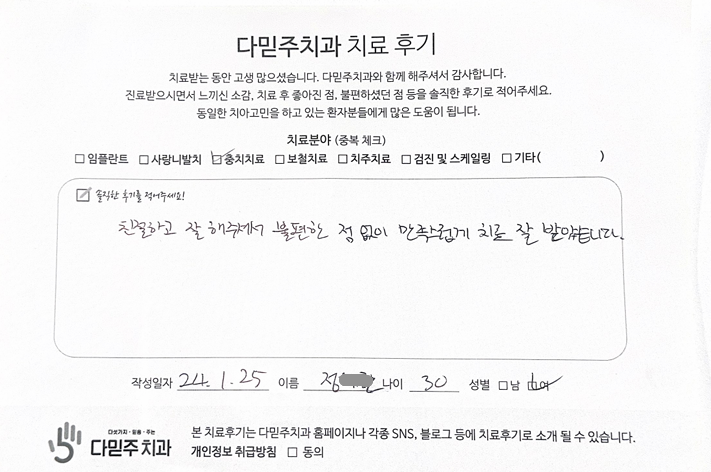 다믿주치과 치료 후기
치료받는 동안 고생 많으셨습니다. 다믿주치과와 함께 해주셔서 감사합니다.
진료받으시면서 느끼신 소감, 치료 후 좋아진 점, 불편하셨던 점 등을 솔직한 후기로 적어주세요.
동일한 치아고민을 하고 있는 환자분들에게 많은 도움이 됩니다.
치료분야 (중복 체크)
□ 임플란트 □ 사랑니발치 ☑ 충치치료 □ 보철치료 □ 치주치료 □ 검진 및 스케일링 □ 기타( )
솔직한 후기를 적어주세요!
친절하고 잘 해주셔서 불편한 점 없이 만족스럽게 치료 잘 받았습니다.
작성일자 24. 1. 25 이름 정 나이 30 성별 □ 남 ☑ 여
다섯가지·믿음·주는
다믿주치과
본 치료후기는 다믿주치과 홈페이지나 각종 SNS, 블로그 등에 치료후기로 소개 될 수 있습니다.
개인정보 취급방침 □ 동의